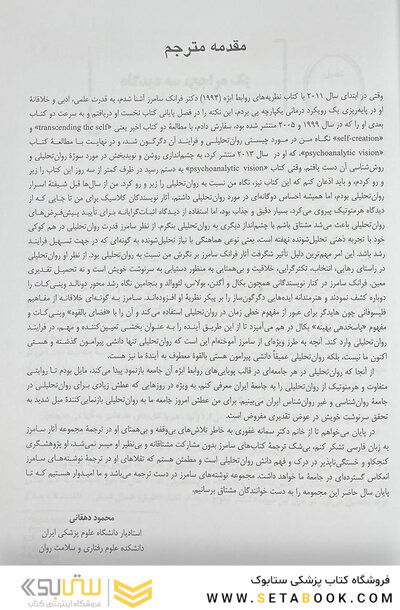 مقدمه مترجم
وقتی در ابتدای سال ۲۰۱۱ با کتاب نظریه‌های روابط ابژه (۱۹۹۴) دکتر فرانک سامرز آشنا شدم، به قدرت علمی، ادبی و خلاقانهٔ
او در پایه‌ریزی یک رویکرد درمانی یکپارچه پی بردم. این نکته را در فصل پایانی کتاب نخست او دریافتم و به سرعت دو کتاب
بعدی او را که در سال ۱۹۹۹ و ۲۰۰۵ منتشر شده بود، سفارش دادم. با مطالعهٔ دو کتاب اخیر یعنی «transcending the self» و
«self-creation» نگاه من در مورد چیستی روان‌تحلیلی و فرایند آن دگرگون شد، و در نهایت با مطالعهٔ کتاب
«psychoanalytic vision»، که او در سال ۲۰۱۳ منتشر کرد، به چشم‌اندازی روشن و نویدبخش در مورد سوژهٔ روان‌تحلیلی و
روش‌شناسی آن دست یافتم. وقتی کتاب «psychoanalytic vision» به دستم رسید در ظرف کمتر از سه روز این کتاب را زیر
و رو کردم، و باید اذعان کنم که این کتاب نیز، نگاه من نسبت به روان‌تحلیلی را زیر و رو کرد. من از سال‌ها قبل شیفتهٔ اسرار
روان‌تحلیلی بودم، اما همیشه احساس دوگانه‌ای در مورد روان‌تحلیلی داشتم. آثار نویسندگان کلاسیک برای من تا جایی که از
دیدگاه هرمنوتیک پیروی می‌کرد، بسیار دقیق و جذاب بود، اما استفاده از دیدگاه اثبات‌گرایانه برای تأیید پیش‌فرض‌های
روان‌تحلیلی باعث می‌شد مشتاق باشم با چشم‌انداز دیگری به روان‌تحلیلی بنگرم. از نظر سامرز قدرت روان‌تحلیلی در هم کوکی
خود با تجربه ذهنی تحلیل‌شونده نهفته است، یعنی نوعی هماهنگی با نیاز تحلیل‌شونده به گونه‌ای که در جهت تسهیل فرایند
رشد باشد. این امر مهم‌ترین دلیل تأثیر شگرفت آثار فرانک سامرز بر نگرش من نسبت به روان‌تحلیلی بود. از نظر او روان‌تحلیلی
در راستای رهایی، انتخاب، تکثرگرایی، خلاقیت و بی‌همتایی به منظور دستیابی به سرنوشت خویش است و نه تحمیل تقدیری
معین. فرانک سامرز در کنار نویسندگانی همچون بکال و آگدن، بولاس، اتووالد و بنجامین نگاه رشد محور دونالد وینی‌کات را
دوباره کشف نمودند و هنرمندانه ایده‌هایی دگرگون‌ساز را بر پیکر نظریهٔ او افزوده‌اند. سامرز به گونه‌ای خلاقانه از مفاهیم
فلیسوفانی چون هایدگر برای عبور از مفهوم خطی زمان در روان‌تحلیلی استفاده می‌کند و آن را با «فضای بالقوه» وینی‌کات و
مفهوم «پاسخ‌دهی بهینه» بکال در هم می‌آمیزد تا از این طریق آینده را به عنوان بخشی تعیین‌کننده و مهم، در فرایند
روان‌تحلیلی وارد کند. آنچه به طرز ویژه‌ای از سامرز آموخته‌ام این است که روان‌تحلیلی تنها دانشی پیرامون گذشته و هستی
اکنون ما نیست، بلکه روان‌تحلیلی عمیقاً دانشی پیرامون هستی بالقوهٔ معطوف به آیندهٔ ما نیز هست.
از آنجا که روان‌تحلیلی در هر جامعه‌ای در قالب پویایی‌های روابط ابژه آن جامعه بازنمود پیدا می‌کند، مایل بودم تا روایتی
متفاوت و هرمنوتیک از روان‌تحلیلی را به جامعهٔ ایران معرفی کنم، به ویژه در روزهایی که عطش زیادی برای روان‌تحلیلی در
جامعهٔ روان‌شناسی و غیر روان‌شناس ایران می‌بینیم. برای من عطش امروز جامعه ما به روان‌تحلیلی بازنمایی‌کنندهٔ میل شدید به
تحقق سرنوشت خویش در عوض تقدیری مفروض است.
در پایان می‌خواهم تا از خانم دکتر سمانه غفوری به خاطر تلاش‌های بی‌وقفه و بی‌همتای او در ترجمهٔ مجموعه آثار سامرز
به زبان فارسی تشکر کنم. بی‌شک ترجمهٔ کتاب‌های سامرز بدون مشارکت مشتاقانه و بی‌نظیر او میسر نمی‌شد. او پژوهشگری
کنجکاو و خستگی‌ناپذیر در درک و فهم دانش روان‌تحلیلی است و مطمئن هستم که تقلاهای او در ترجمهٔ نوشته‌های سامرز
انعکاس گسترده‌ای در جامعهٔ ما خواهد داشت. مجموعه نوشته‌های سامرز در دست ترجمه می‌باشد و ما امیدوار هستیم که تا
پایان سال حاضر این مجموعه را به دست خوانندگان مشتاق برسانیم.
محمود دهقانی
استادیار دانشگاه علوم پزشکی ایران
دانشکده علوم رفتاری و سلامت روان
فروشگاه کتاب پزشکی ستابوک
WWW.SETABOOK.COM
ستابوک
فروشگاه اینترنتی کتاب